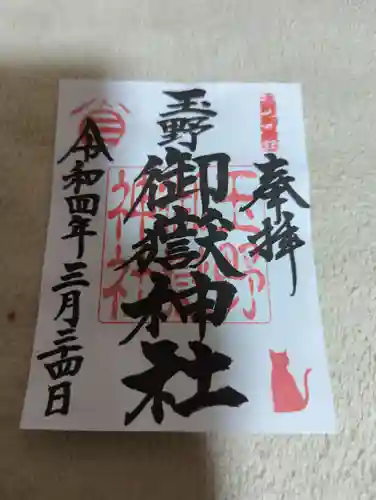 奉拝
玉野
御嶽神社
令和四年三月三十四日